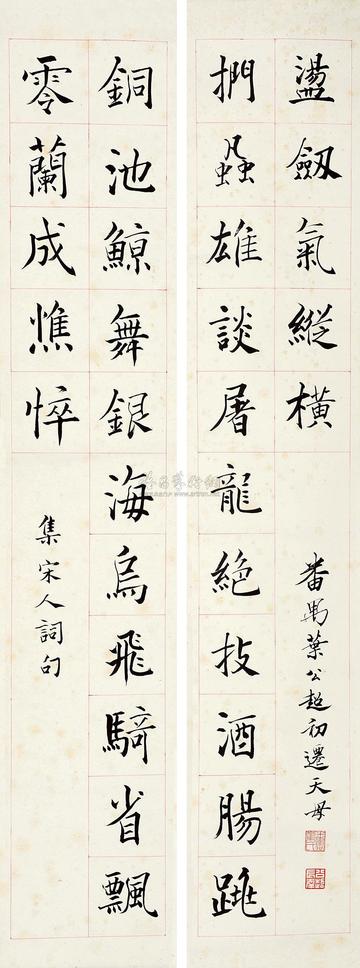 捫蝨雄談屠龍絕技酒腸跳
盪劒氣縱橫
番禺葉公超初遷天母
銅池鯨舞銀海烏飛騎省飄
零蘭成憔悴
集宋人詞句